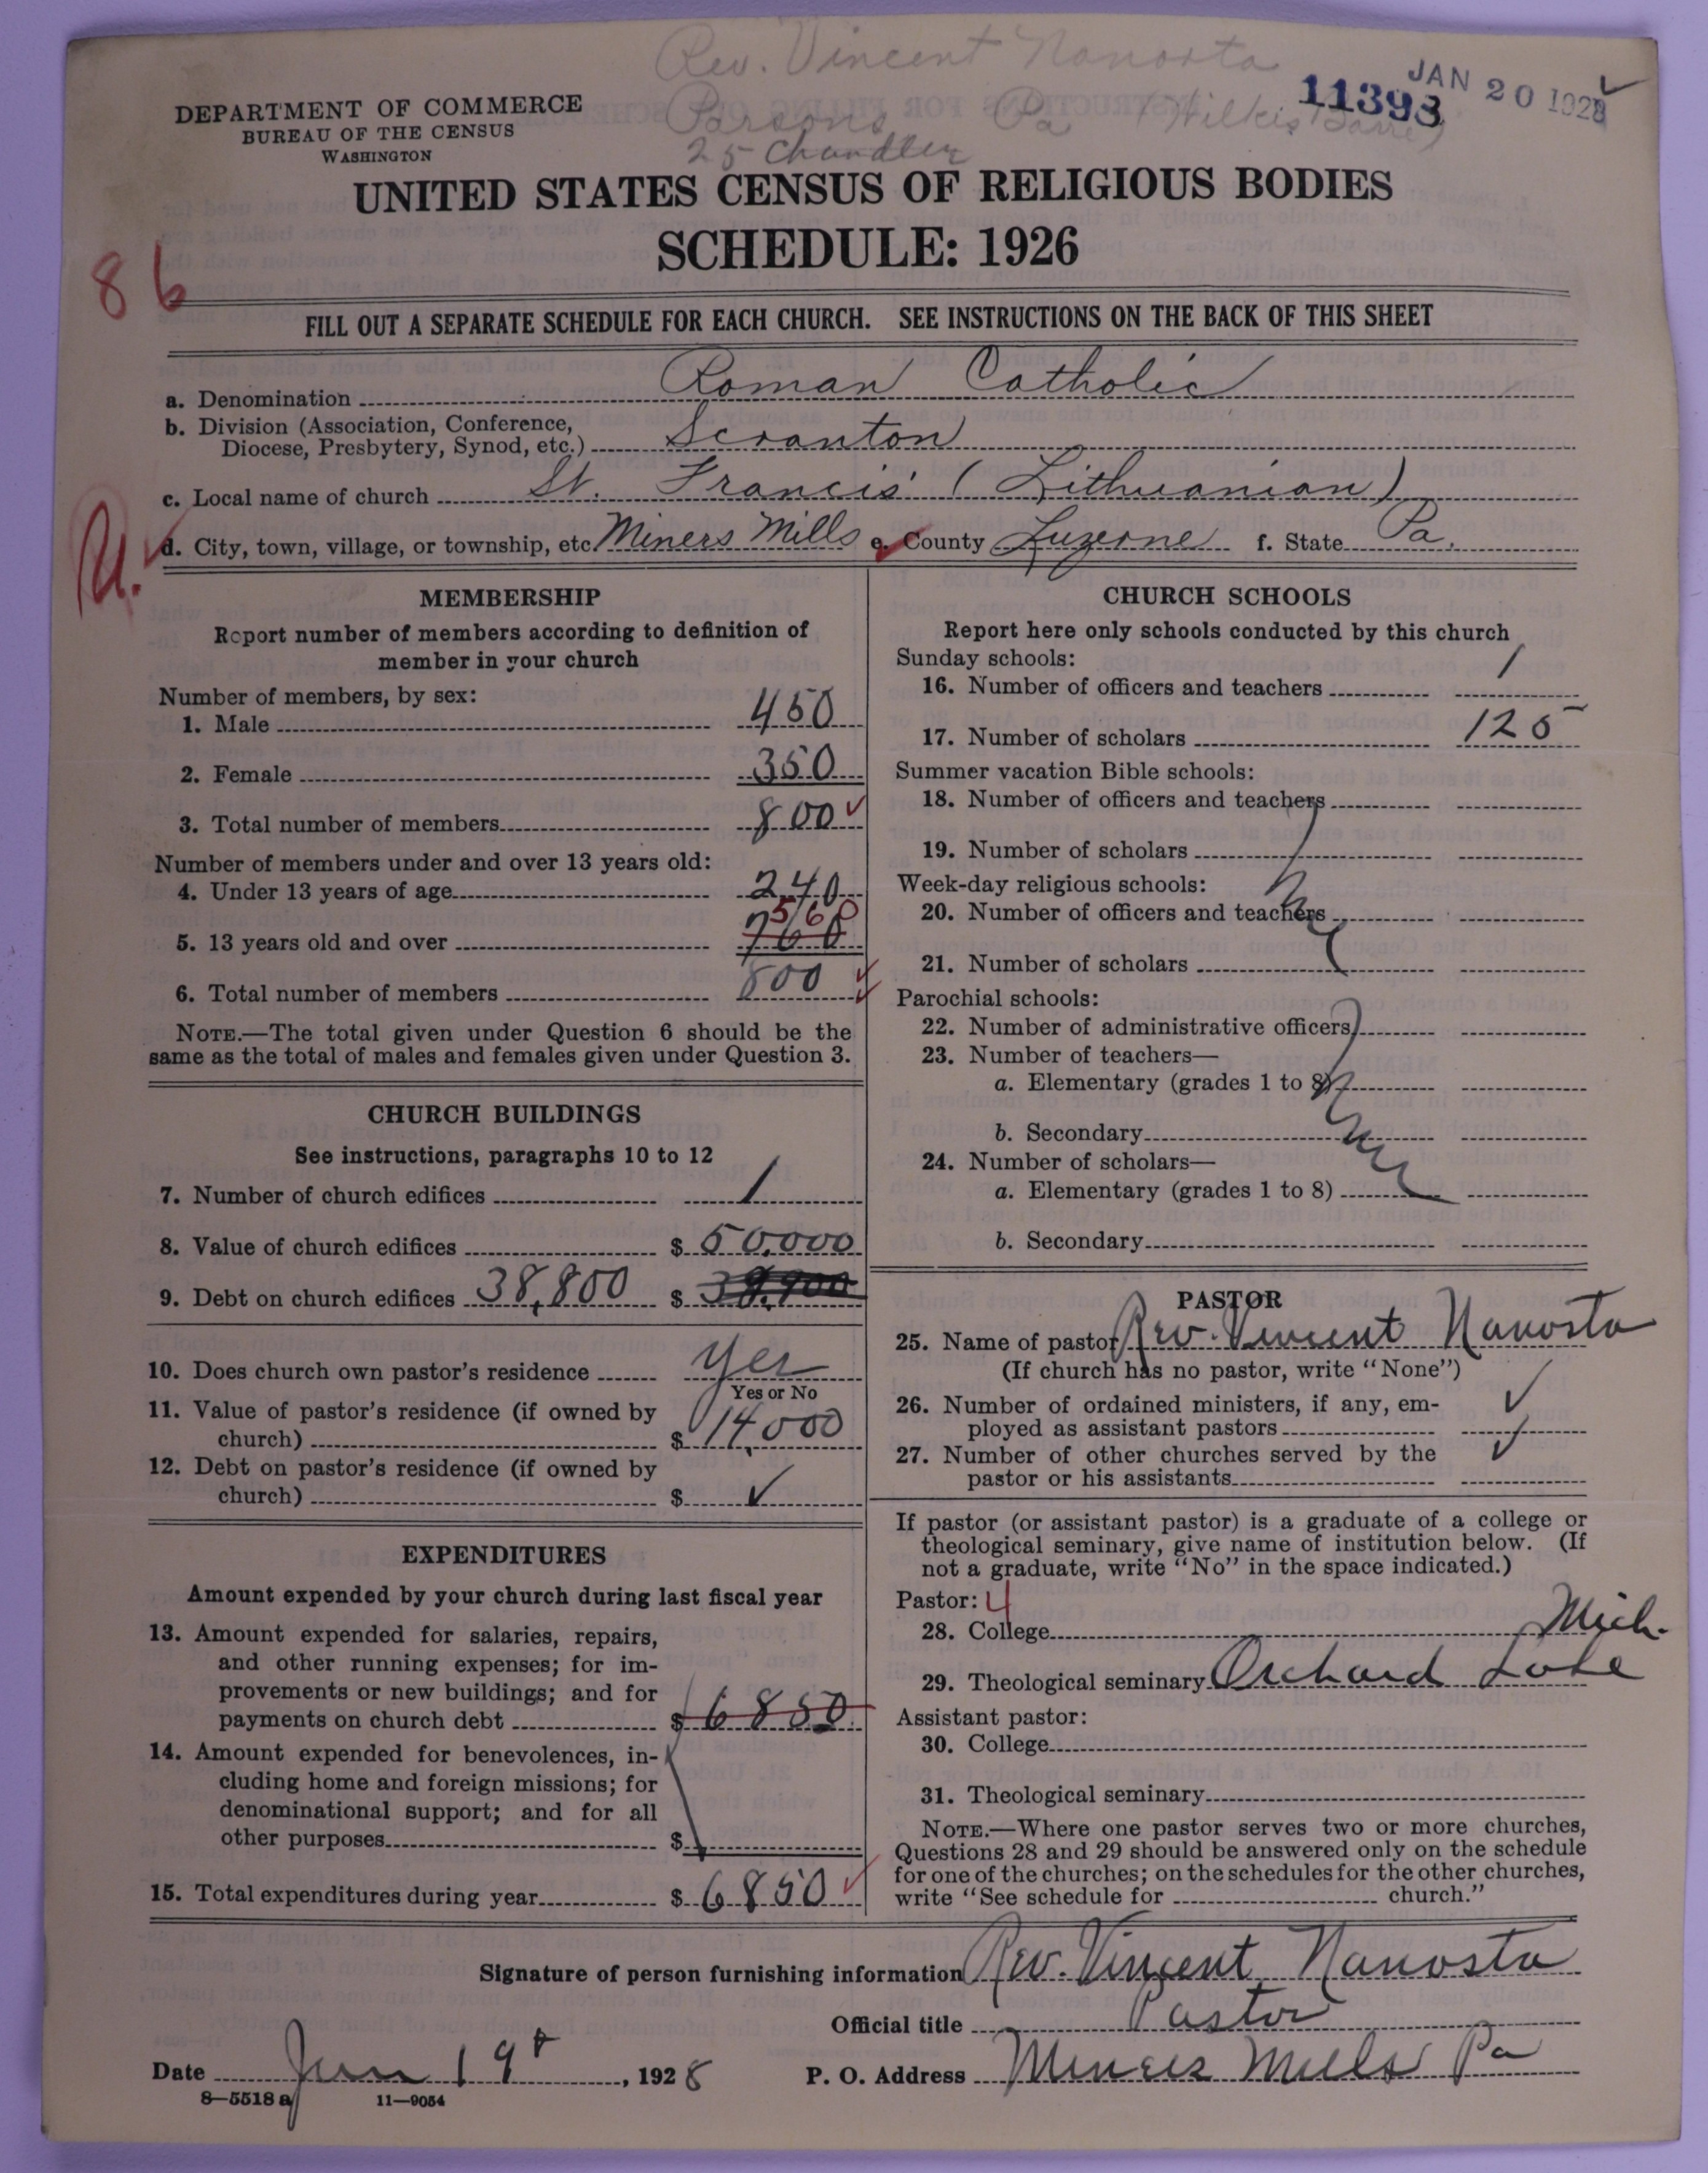 Rev. Vincent Nanorta
JAN 20 1928
11393
DEPARTMENT OF COMMERCE
BUREAU OF THE CENSUS
WASHINGTON
Parsons Pa (Wilkes Barre)
25 Chandler
UNITED STATES CENSUS OF RELIGIOUS BODIES
SCHEDULE: 1926
86
FILL OUT A SEPARATE SCHEDULE FOR EACH CHURCH. SEE INSTRUCTIONS ON THE BACK OF THIS SHEET
a. Denomination Roman Catholic
b. Division (Association, Conference,
Diocese, Presbytery, Synod, etc.) Scranton
c. Local name of church St. Francis' (Lithuanian)
d. City, town, village, or township, etc. Miners Mills e. County Luzerne f. State Pa.
U.
MEMBERSHIP
Report number of members according to definition of
member in your church
Number of members, by sex:
1. Male 450
2. Female 350
3. Total number of members 800
Number of members under and over 13 years old:
4. Under 13 years of age 240
560
5. 13 years old and over 760
6. Total number of members 800
NOTE.—The total given under Question 6 should be the
same as the total of males and females given under Question 3.
CHURCH BUILDINGS
See instructions, paragraphs 10 to 12
7. Number of church edifices 1
8. Value of church edifices $ 50,000
9. Debt on church edifices 38,800 $
10. Does church own pastor's residence Yes
Yes or No
11. Value of pastor's residence (if owned by
church) $ 14,000
12. Debt on pastor's residence (if owned by
church) $ ✓
EXPENDITURES
Amount expended by your church during last fiscal year
13. Amount expended for salaries, repairs,
and other running expenses; for im-
provements or new buildings; and for
payments on church debt $ 6850
14. Amount expended for benevolences, in-
cluding home and foreign missions; for
denominational support; and for all
other purposes $
15. Total expenditures during year $ 6850
CHURCH SCHOOLS
Report here only schools conducted by this church
Sunday schools:
16. Number of officers and teachers 1
17. Number of scholars 125
Summer vacation Bible schools:
18. Number of officers and teachers
19. Number of scholars
Week-day religious schools:
20. Number of officers and teachers
21. Number of scholars
Parochial schools:
22. Number of administrative officers
23. Number of teachers—
a. Elementary (grades 1 to 8)
b. Secondary
24. Number of scholars—
a. Elementary (grades 1 to 8)
b. Secondary
PASTOR
25. Name of pastor Rev. Vincent Nanorta
(If church has no pastor, write "None")
26. Number of ordained ministers, if any, em-
ployed as assistant pastors ✓
27. Number of other churches served by the
pastor or his assistants ✓
If pastor (or assistant pastor) is a graduate of a college or
theological seminary, give name of institution below. (If
not a graduate, write "No" in the space indicated.)
Pastor: 4
28. College Mich.
29. Theological seminary Orchard Lake
Assistant pastor:
30. College
31. Theological seminary
NOTE.—Where one pastor serves two or more churches,
Questions 28 and 29 should be answered only on the schedule
for one of the churches; on the schedules for the other churches,
write "See schedule for church."
Signature of person furnishing information Rev. Vincent Nanorta
Official title Pastor
Date 19, 1928 P. O. Address Miners Mills Pa
8—5518 a 11—9054